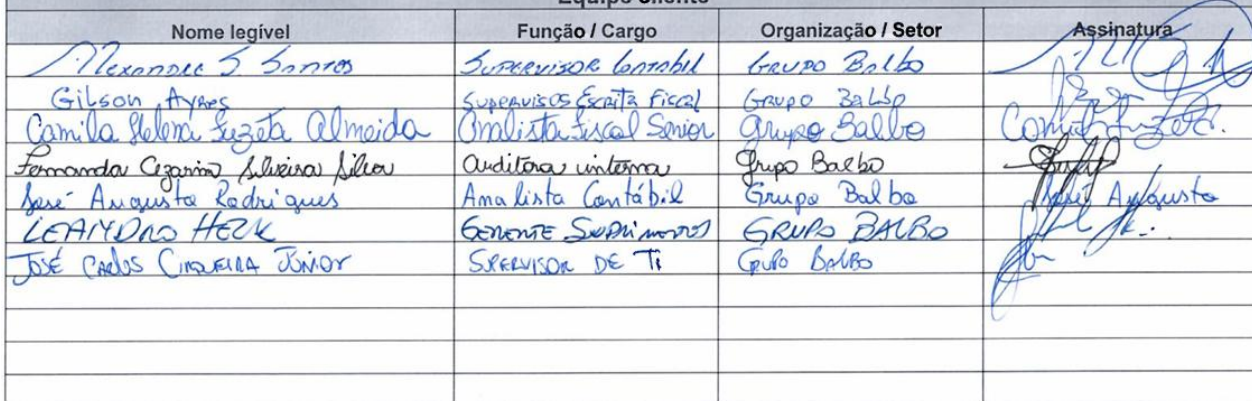 Equipe Cliente
Nome legível Função / Cargo Organização / Setor Assinatura
Alexandre S. Santos SUPERVISOR Contabil GRUPO Balbo
Gilson Ayres Supervisos Escrita Fiscal Grupo Balbo
Camila Helena Suzeta Almeida Analista Fiscal Senior grupo Balbo
Fernanda Cezarino Silveira Silva auditora interna Grupo Balbo
José Augusto Rodrigues Analista Contábil Grupo Balbo José Augusto
LEANDRO HECK GERENTE SUPRIMENTOS GRUPO BALBO
JOSÉ CARLOS CIRQUEIRA JÚNIOR SUPERVISOR DE TI GRUPO BALBO